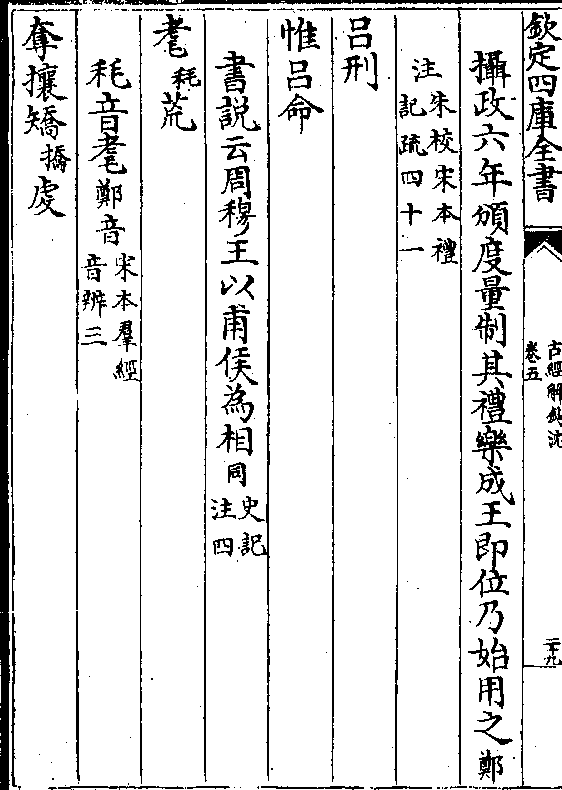 欽定四庫全書
古經解鉤沈
卷五
二十九
攝政六年頒度量制其禮樂成王即位乃始用之鄭
注朱校宋本禮
記疏四十一
呂刑
惟呂命
書説云周穆王以甫侯為相同史記
注四
耄秏荒
秏音耄鄭音宋本羣經
音辨三
奪攘矯撟虔